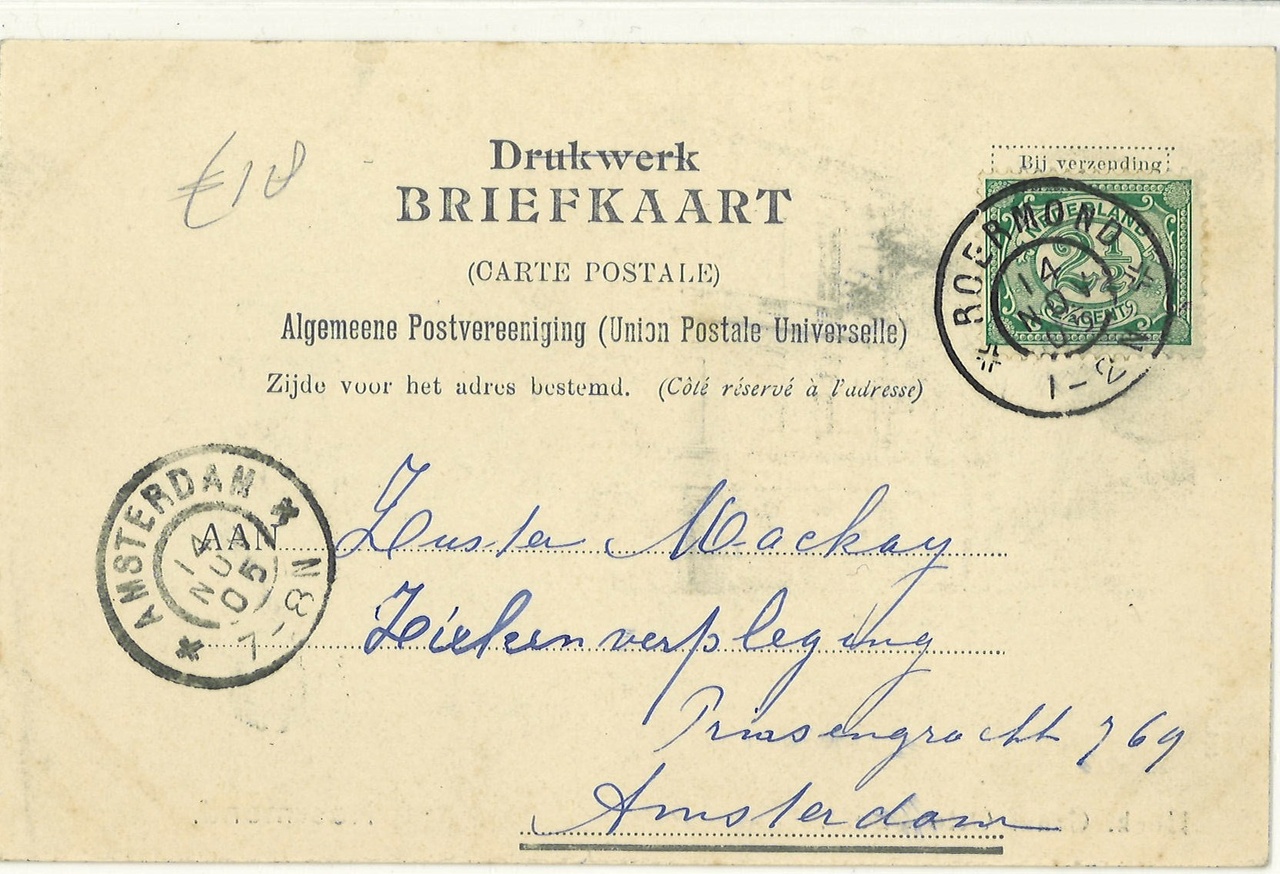 Drukwerk
BRIEFKAART
(CARTE POSTALE)
Algemeene Postvereeniging (Union Postale Universelle)
Zijde voor het adres bestemd. (Côté réservé à l'adresse)
Bij verzending
NEDERLAND
2½
CENT
* ROERMOND *
14
NOV
1-2 N
* AMSTERDAM *
14
NOV
05
7-8N
AAN Zuster Mackay
Ziekenverpleging
Prinsengracht 769
Amsterdam